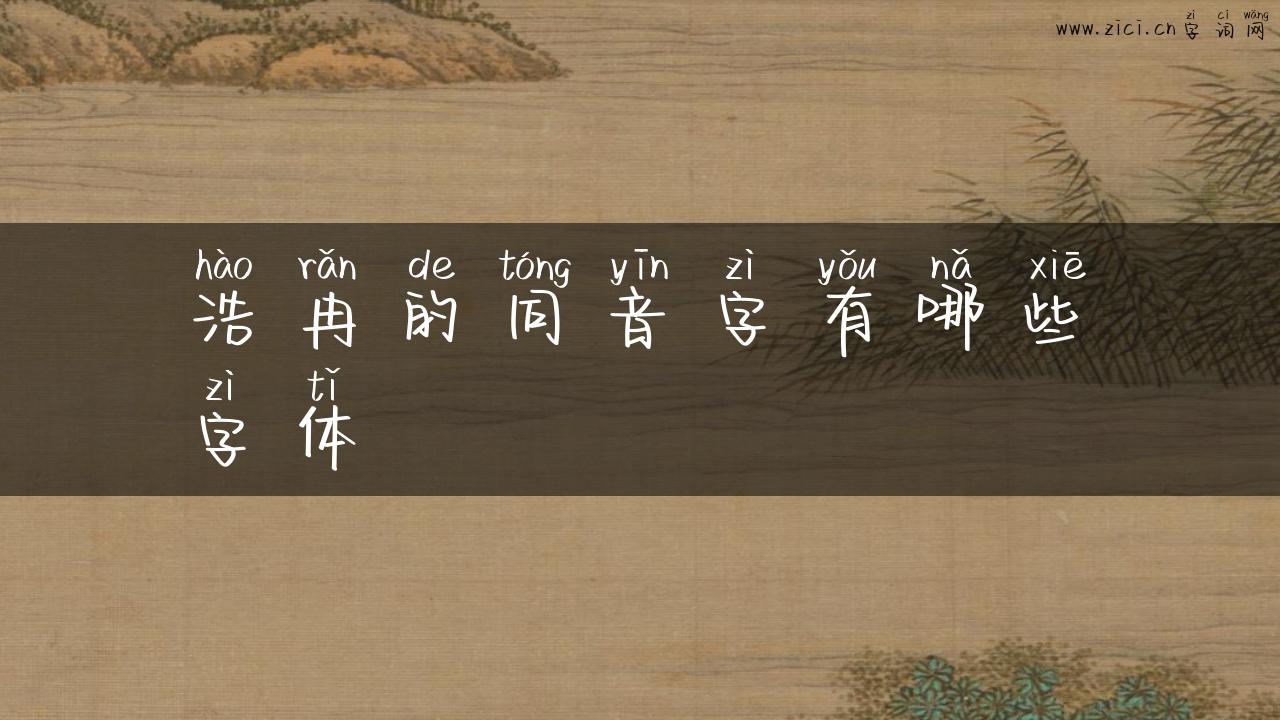 zì cí wǎng
www.zici.cn字词网
hào rǎn de tóng yīn zì yǒu nǎ xiē
浩冉的同音字有哪些
zì tǐ
字体